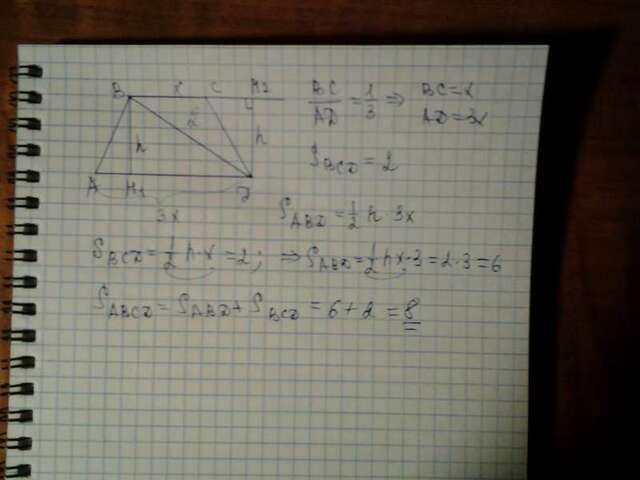 B x C H2
2
h h
A H1 D
3x
BC/AD = 1/3 ⇒ BC = x
AD = 3x
S BCD = 2
S ABD = 1/2 h · 3x
S BCD = 1/2 h · x = 2; ⇒ S ABD = 1/2 hx · 3 = 2 · 3 = 6
S ABCD = S ABD + S BCD = 6 + 2 = 8